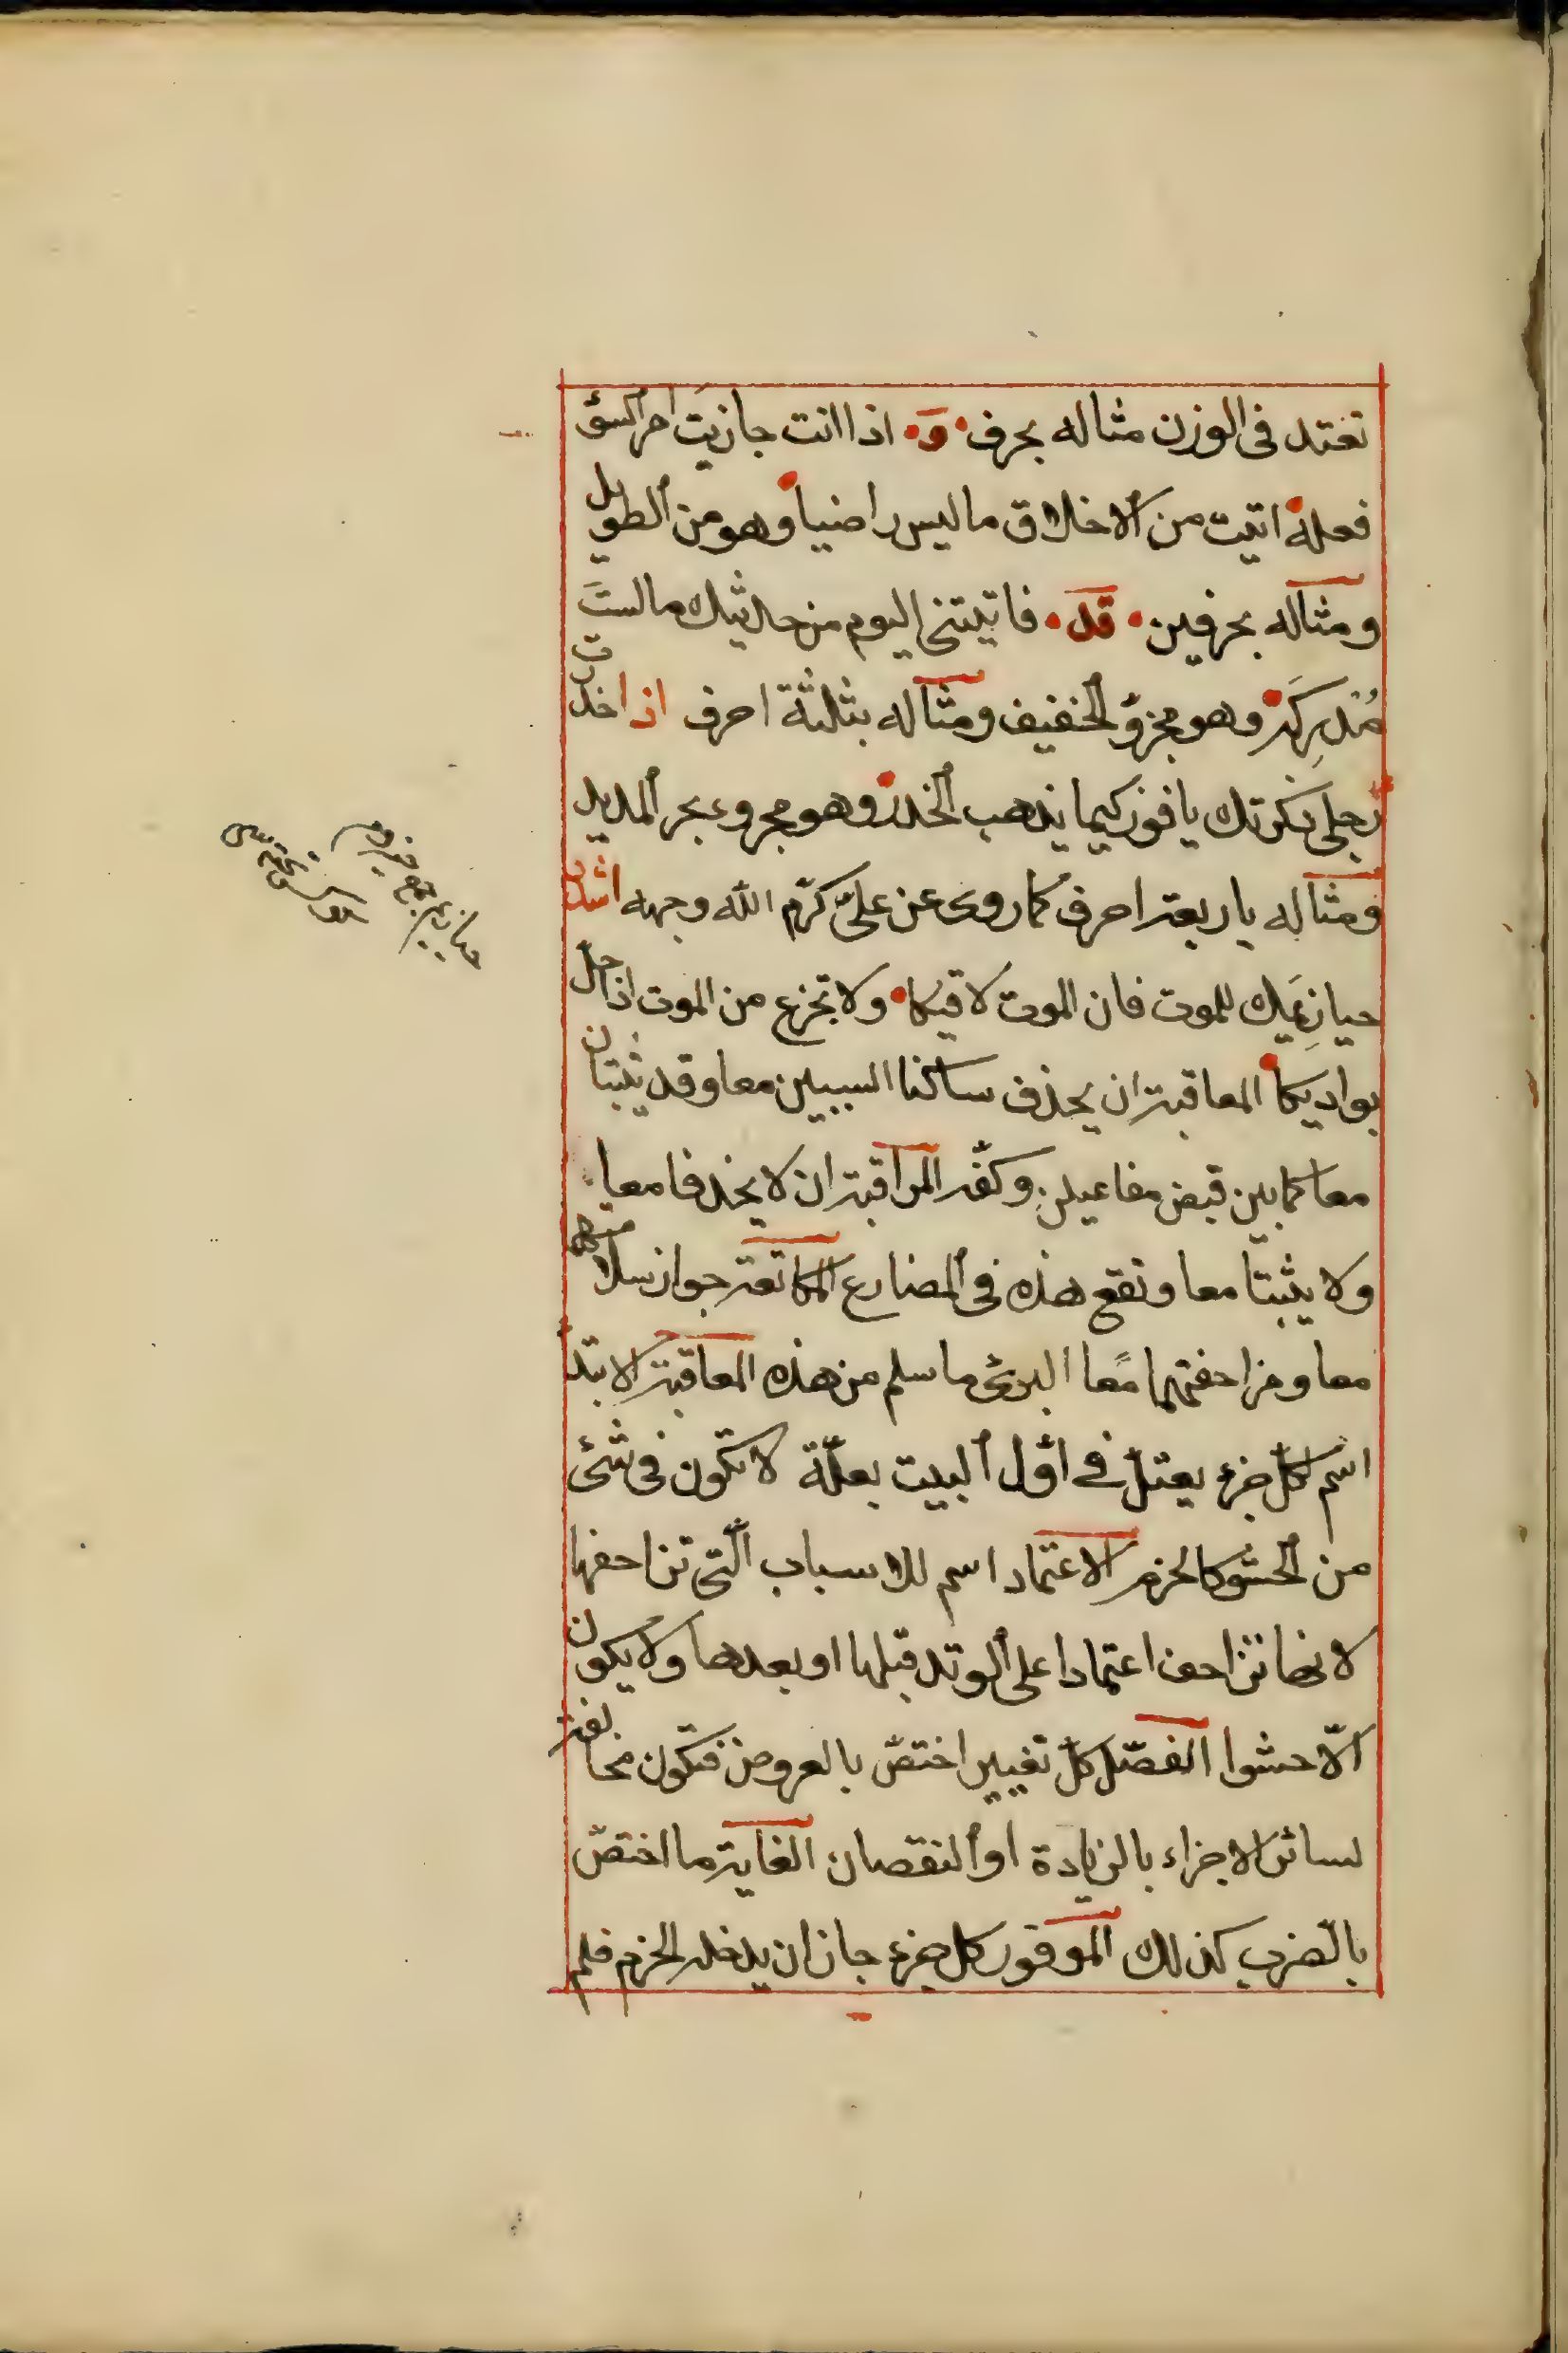 تعتد فى الوزن مثاله بحرف وَ اذا انت جازيت امرأ السؤَ
فعله اتيت من الاخلاق ما ليس راضيا وهو من الطويل
ومثاله بحرفين قد فاتيتنى اليوم من حديثك ما لستَ
مُدرِكَه وهو مجزؤ الخفيف ومثاله بثلثة احرف اذا خدرت
رجلى ذكرتك يا فوز كيما يذهب الخدر وهو مجزوء بحر المديد
ومثاله باربعة احرف كما روى عن علىّ كرّم الله وجهه اشدد
حيازِيمَك للموت فان الموت لاقيكا ولا تجزع من الموت اذا حل
بواديكا المعاقبة ان يحذف ساكنا السببين معا وقد يثبتان
معا كما بين قبض مفاعيلن وكفّه المراقبة ان لا يحذفا معا
ولا يثبتا معا وتقع هذه فى المضارع المكانفة جواز سلامتهما
معا ومزاحفتهما معًا البرئ ما سلم من هذه المعاقبة الابتدأ
اسم لكلّ جزء يعتلّ فے اوّل البيت بعلّة لا تكون فى شئ
من الحشو كالخرم الاعتماد اسم للاسباب الّتى تزاحفها
لانها تزاحف اعتمادا على الوتد قبلها او بعدها ولا يكون
الّا حشوا الفصل كلّ تغيير اختصّ بالعروض فتكون مخالفة
لسائر الاجزاء بالزيادة او النقصان الغاية ما اختصّ
بالضرب كذلك الموفور كل جزء جاز ان يدخله الخرم فلم